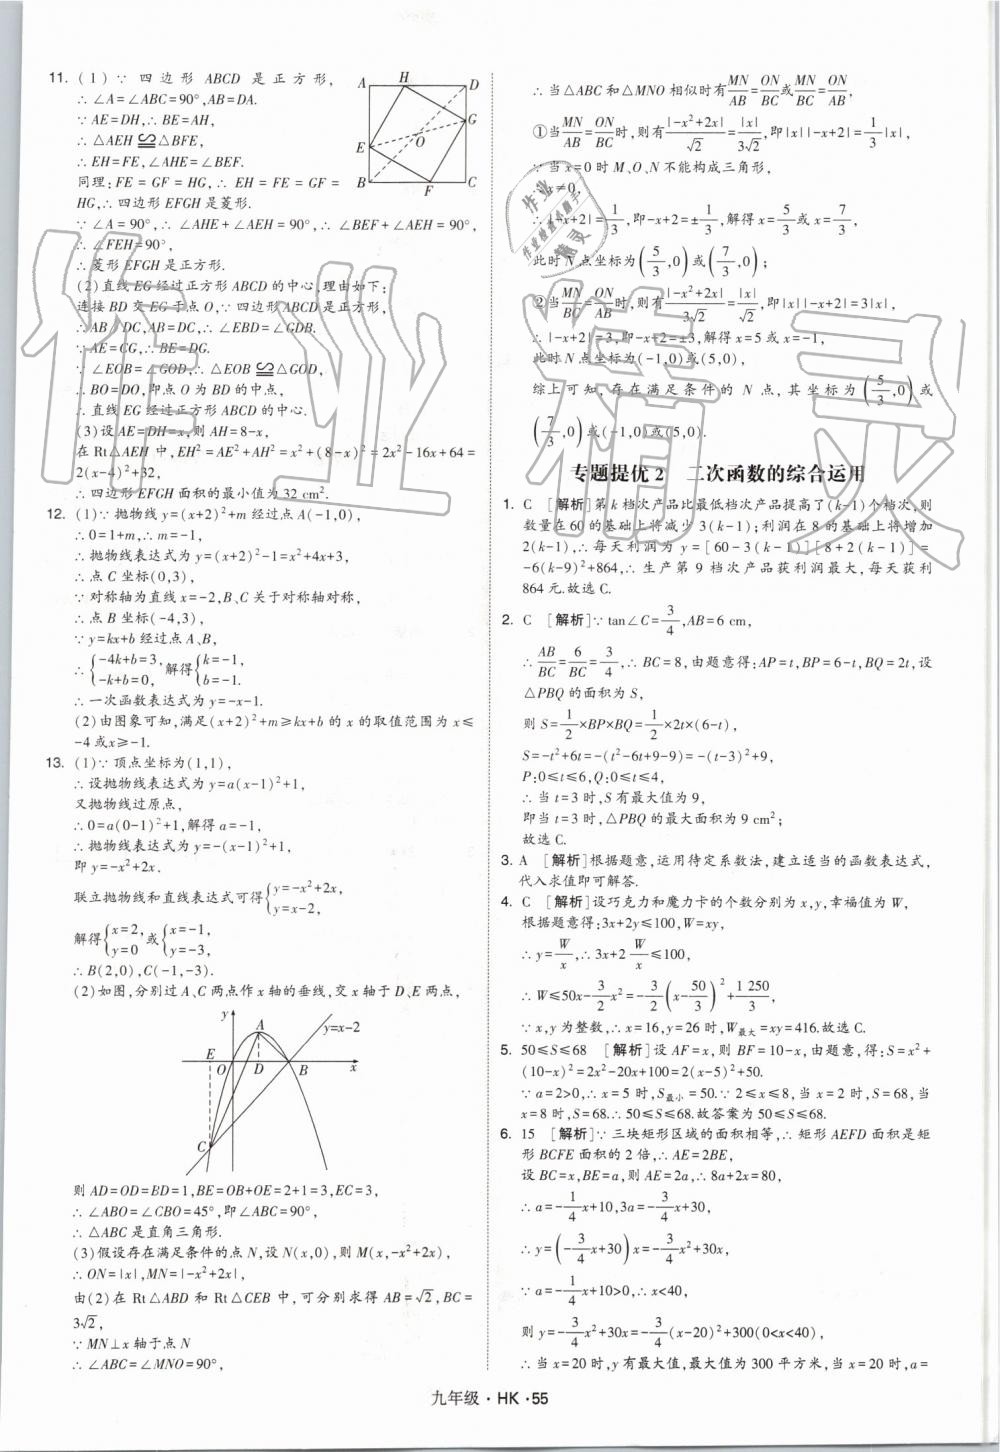 11. (1)∵ 四边形 ABCD 是正方形,
∴∠A=∠ABC=90°,AB=DA.
∵AE=DH,∴BE=AH,
∴△AEH≌△BFE,
∴EH=FE,∠AHE=∠BEF.
同理:FE=GF=HG,∴EH=FE=GF=
HG,∴四边形 EFGH 是菱形.
∵∠A=90°,∴∠AHE+∠AEH=90°,∴∠BEF+∠AEH=90°,
∴∠FEH=90°,
∴菱形 EFGH 是正方形.
(2)直线 EG 经过正方形 ABCD 的中心,理由如下:
连接 BD 交 EG 于点 O,∵四边形 ABCD 是正方形,
∴AB∥DC,AB=DC,∴∠EBD=∠GDB.
∵AE=CG,∴BE=DG.
∵∠EOB=∠GOD,∴△EOB≌△GOD,
∴BO=DO,即点 O 为 BD 的中点,
∴直线 EG 经过正方形 ABCD 的中心.
(3)设 AE=DH=x,则 AH=8-x,
在 Rt△AEH 中,EH²=AE²+AH²=x²+(8-x)²=2x²-16x+64=
2(x-4)²+32,
∴四边形 EFGH 面积的最小值为 32 cm².
12. (1)∵抛物线 y=(x+2)²+m 经过点 A(-1,0),
∴0=1+m,∴m=-1,
∴抛物线表达式为 y=(x+2)²-1=x²+4x+3,
∴点 C 坐标(0,3),
∵对称轴为直线 x=-2,B、C 关于对称轴对称,
∴点 B 坐标(-4,3),
∵y=kx+b 经过点 A、B,
∴{-4k+b=3, -k+b=0. 解得{k=-1, b=-1.
∴一次函数表达式为 y=-x-1.
(2)由图象可知,满足(x+2)²+m≥kx+b 的 x 的取值范围为 x≤
-4 或 x≥-1.
13. (1)∵顶点坐标为(1,1),
∴设抛物线表达式为 y=a(x-1)²+1,
又抛物线过原点,
∴0=a(0-1)²+1,解得 a=-1,
∴抛物线表达式为 y=-(x-1)²+1,
即 y=-x²+2x.
联立抛物线和直线表达式可得{y=-x²+2x, y=x-2,
解得{x=2, y=0 或{x=-1, y=-3,
∴B(2,0),C(-1,-3).
(2)如图,分别过 A、C 两点作 x 轴的垂线,交 x 轴于 D、E 两点,
y A y=x-2
E O D B x
C
则 AD=OD=BD=1,BE=OB+OE=2+1=3,EC=3,
∴∠ABO=∠CBO=45°,即∠ABC=90°,
∴△ABC 是直角三角形.
(3)假设存在满足条件的点 N,设 N(x,0),则 M(x,-x²+2x),
∴ON=|x|,MN=|-x²+2x|,
由(2)在 Rt△ABD 和 Rt△CEB 中,可分别求得 AB=√2,BC=
3√2,
∵MN⊥x 轴于点 N
∴∠ABC=∠MNO=90°,
A H D
G
E O
B F C
∴当△ABC 和△MNO 相似时有MN/AB=ON/BC或MN/BC=ON/AB,
①当MN/AB=ON/BC时,则有|-x²+2x|/√2=|x|/3√2,即|x||-x+2|=1/3|x|,
∵当 x=0 时 M、O、N 不能构成三角形,
∴x≠0,
∴|-x+2|=1/3,即-x+2=±1/3,解得 x=5/3或 x=7/3,
此时 N 点坐标为(5/3,0)或(7/3,0);
②当MN/BC=ON/AB时,则有|-x²+2x|/3√2=|x|/√2,即|x||-x+2|=3|x|,
∴|-x+2|=3,即-x+2=±3,解得 x=5 或 x=-1,
此时 N 点坐标为(-1,0)或(5,0),
综上可知,存在满足条件的 N 点,其坐标为(5/3,0)或
(7/3,0)或(-1,0)或(5,0).
专题提优 2 二次函数的综合运用
1. C [解析]第 k 档次产品比最低档次产品提高了(k-1)个档次,则
数量在 60 的基础上将减少 3(k-1);利润在 8 的基础上将增加
2(k-1),∴每天利润为 y=[60-3(k-1)][8+2(k-1)]=
-6(k-9)²+864,∴生产第 9 档次产品获利润最大,每天获利
864 元.故选 C.
2. C [解析]∵tan∠C=3/4,AB=6 cm,
∴AB/BC=6/BC=3/4,∴BC=8,由题意得:AP=t,BP=6-t,BQ=2t,设
△PBQ 的面积为 S,
则 S=1/2×BP×BQ=1/2×2t×(6-t),
S=-t²+6t=-(t²-6t+9-9)=-(t-3)²+9,
P:0≤t≤6,Q:0≤t≤4,
∴当 t=3 时,S 有最大值为 9,
即当 t=3 时,△PBQ 的最大面积为 9 cm²;
故选 C.
3. A [解析]根据题意,运用待定系数法,建立适当的函数表达式,
代入求值即可解答.
4. C [解析]设巧克力和魔力卡的个数分别为 x,y,幸福值为 W,
根据题意得:3x+2y≤100,W=xy,
∴y=W/x,∴3x+2 W/x≤100,
∴W≤50x-3/2x²=-3/2(x-50/3)²+1 250/3,
∵x,y 为整数,∴x=16,y=26 时,W最大=xy=416.故选 C.
5. 50≤S≤68 [解析]设 AF=x,则 BF=10-x,由题意,得:S=x²+
(10-x)²=2x²-20x+100=2(x-5)²+50.
∵a=2>0,∴x=5 时,S最小=50.∵2≤x≤8,当 x=2 时,S=68,当
x=8 时,S=68.∴50≤S≤68.故答案为 50≤S≤68.
6. 15 [解析]∵三块矩形区域的面积相等,∴矩形 AEFD 面积是矩
形 BCFE 面积的 2 倍,∴AE=2BE,
设 BC=x,BE=a,则 AE=2a,∴8a+2x=80,
∴a=-1/4x+10,3a=-3/4x+30,
∴y=(-3/4x+30)x=-3/4x²+30x,
∵a=-1/4x+10>0,∴x<40,
则 y=-3/4x²+30x=-3/4(x-20)²+300(0<x<40),
∴当 x=20 时,y 有最大值,最大值为 300 平方米,当 x=20 时,a=
九年级·HK·55
作业精灵